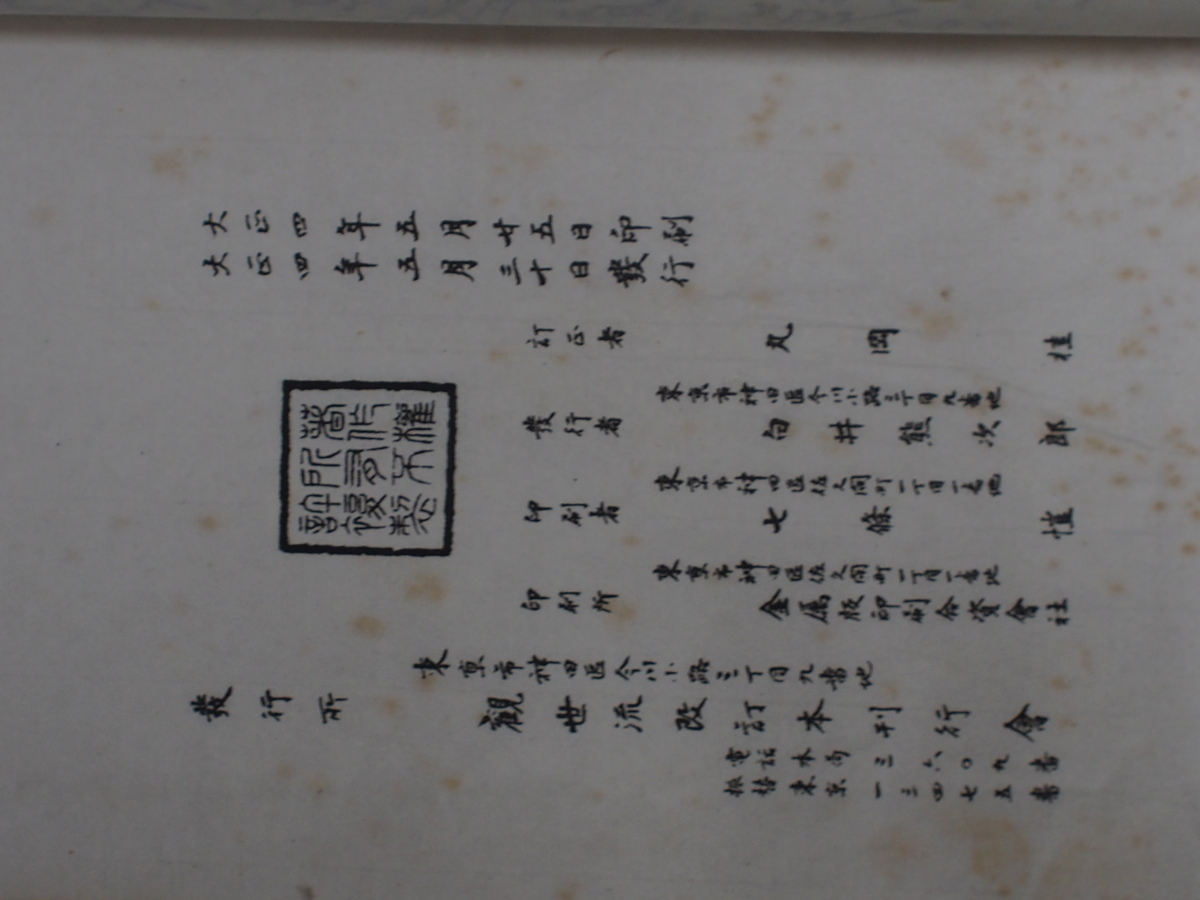 大正四年五月廿五日印刷
大正四年五月三十日發行
訂正者 丸岡桂
東京市神田區今川小路三丁目九番地
發行者 白井熊次郎
東京市神田區佐久間町一丁目一番地
印刷者 七條愃
東京市神田區佐久間町一丁目一番地
印刷所 金属版印刷合資會社
著作權
所有不
許複製
東京市神田區今川小路三丁目九番地
發行所 觀世流改訂本刊行會
電話本局三六〇九番
振替東京一三四七五番